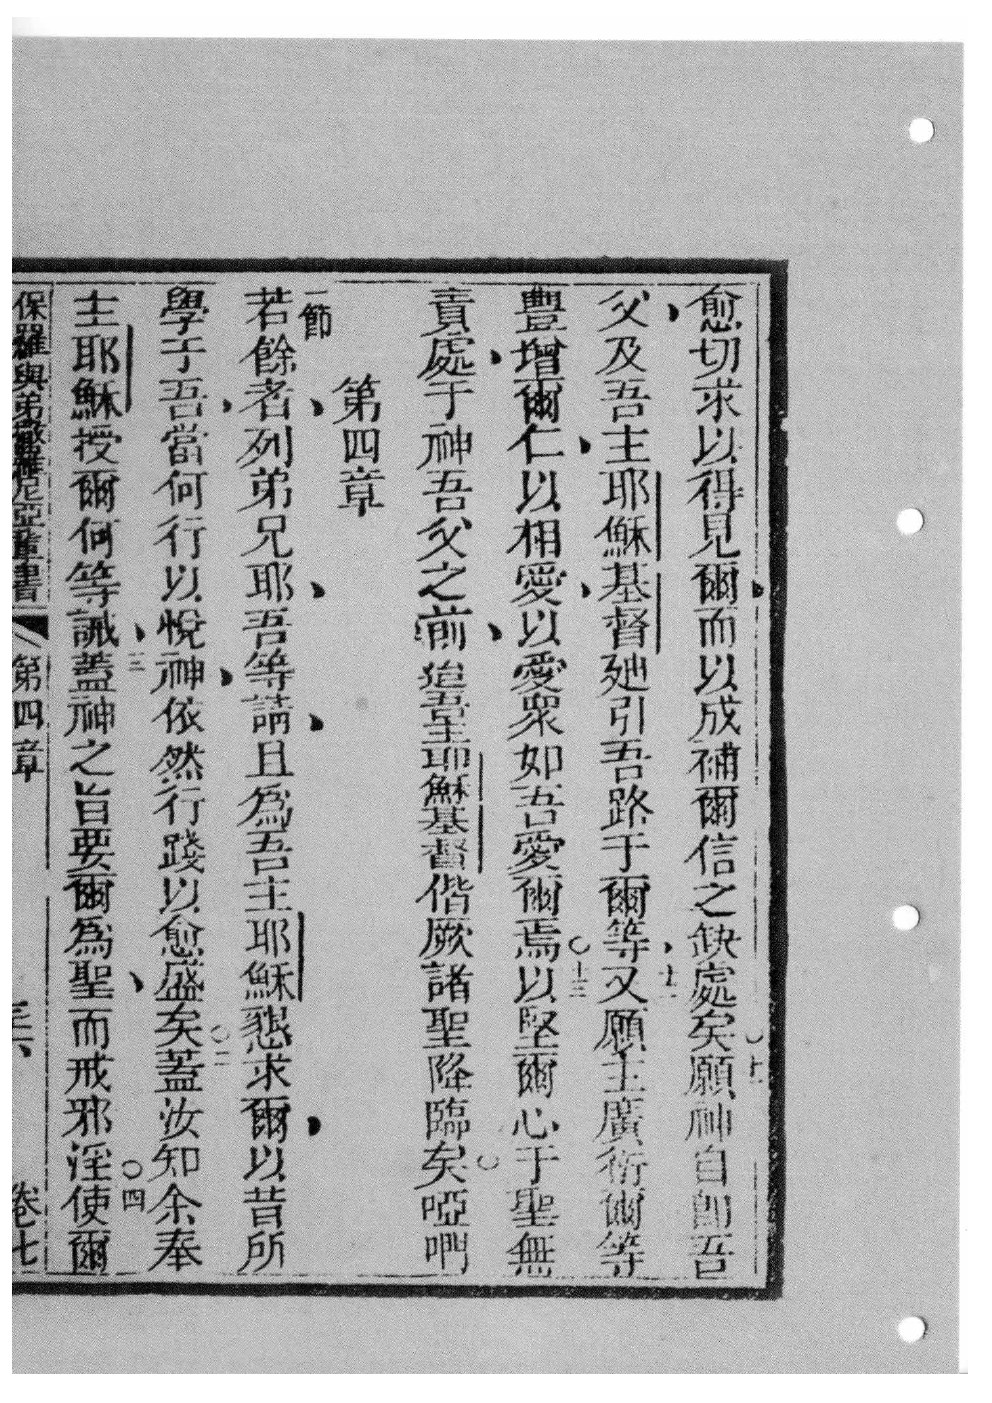 愈切求以得見爾、而以成補爾信之缺處矣。十一願神自卽吾
父、及吾主耶穌基督、廸引吾路于爾等、十二又願主廣衍爾等
豐增爾仁、以相愛、以愛衆如吾愛爾焉。十三以堅爾心于聖無
責處、于神吾父之前、迨吾主耶穌基督偕厥諸聖降臨矣。啞們
第四章
一節若餘者、列弟兄耶、吾等請、且爲吾主耶穌懇求爾、以昔所
學于吾、當何行以悅神、依然行踐以愈盛矣。二蓋汝知余奉
主耶穌授爾何等誡、三蓋神之旨要爾爲聖、而戒邪淫。四使爾
保羅與弟撒羅尼亞輩書 第四章 三、 卷七